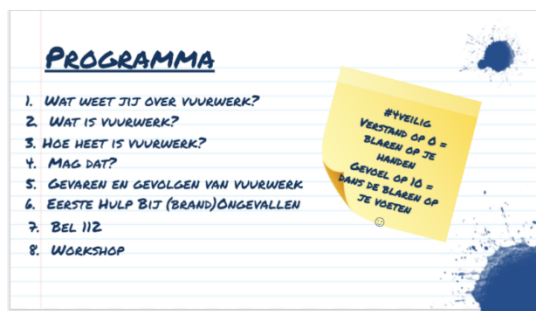 Programma
1. Wat weet jij over vuurwerk?
2. Wat is vuurwerk?
3. Hoe heet is vuurwerk?
4. Mag dat?
5. Gevaren en gevolgen van vuurwerk
6. Eerste Hulp Bij (brand)Ongevallen
7. Bel 112
8. Workshop
#4veilig
Verstand op 0 =
blaren op je
handen
Gevoel op 10 =
dans de blaren op
je voeten
☺